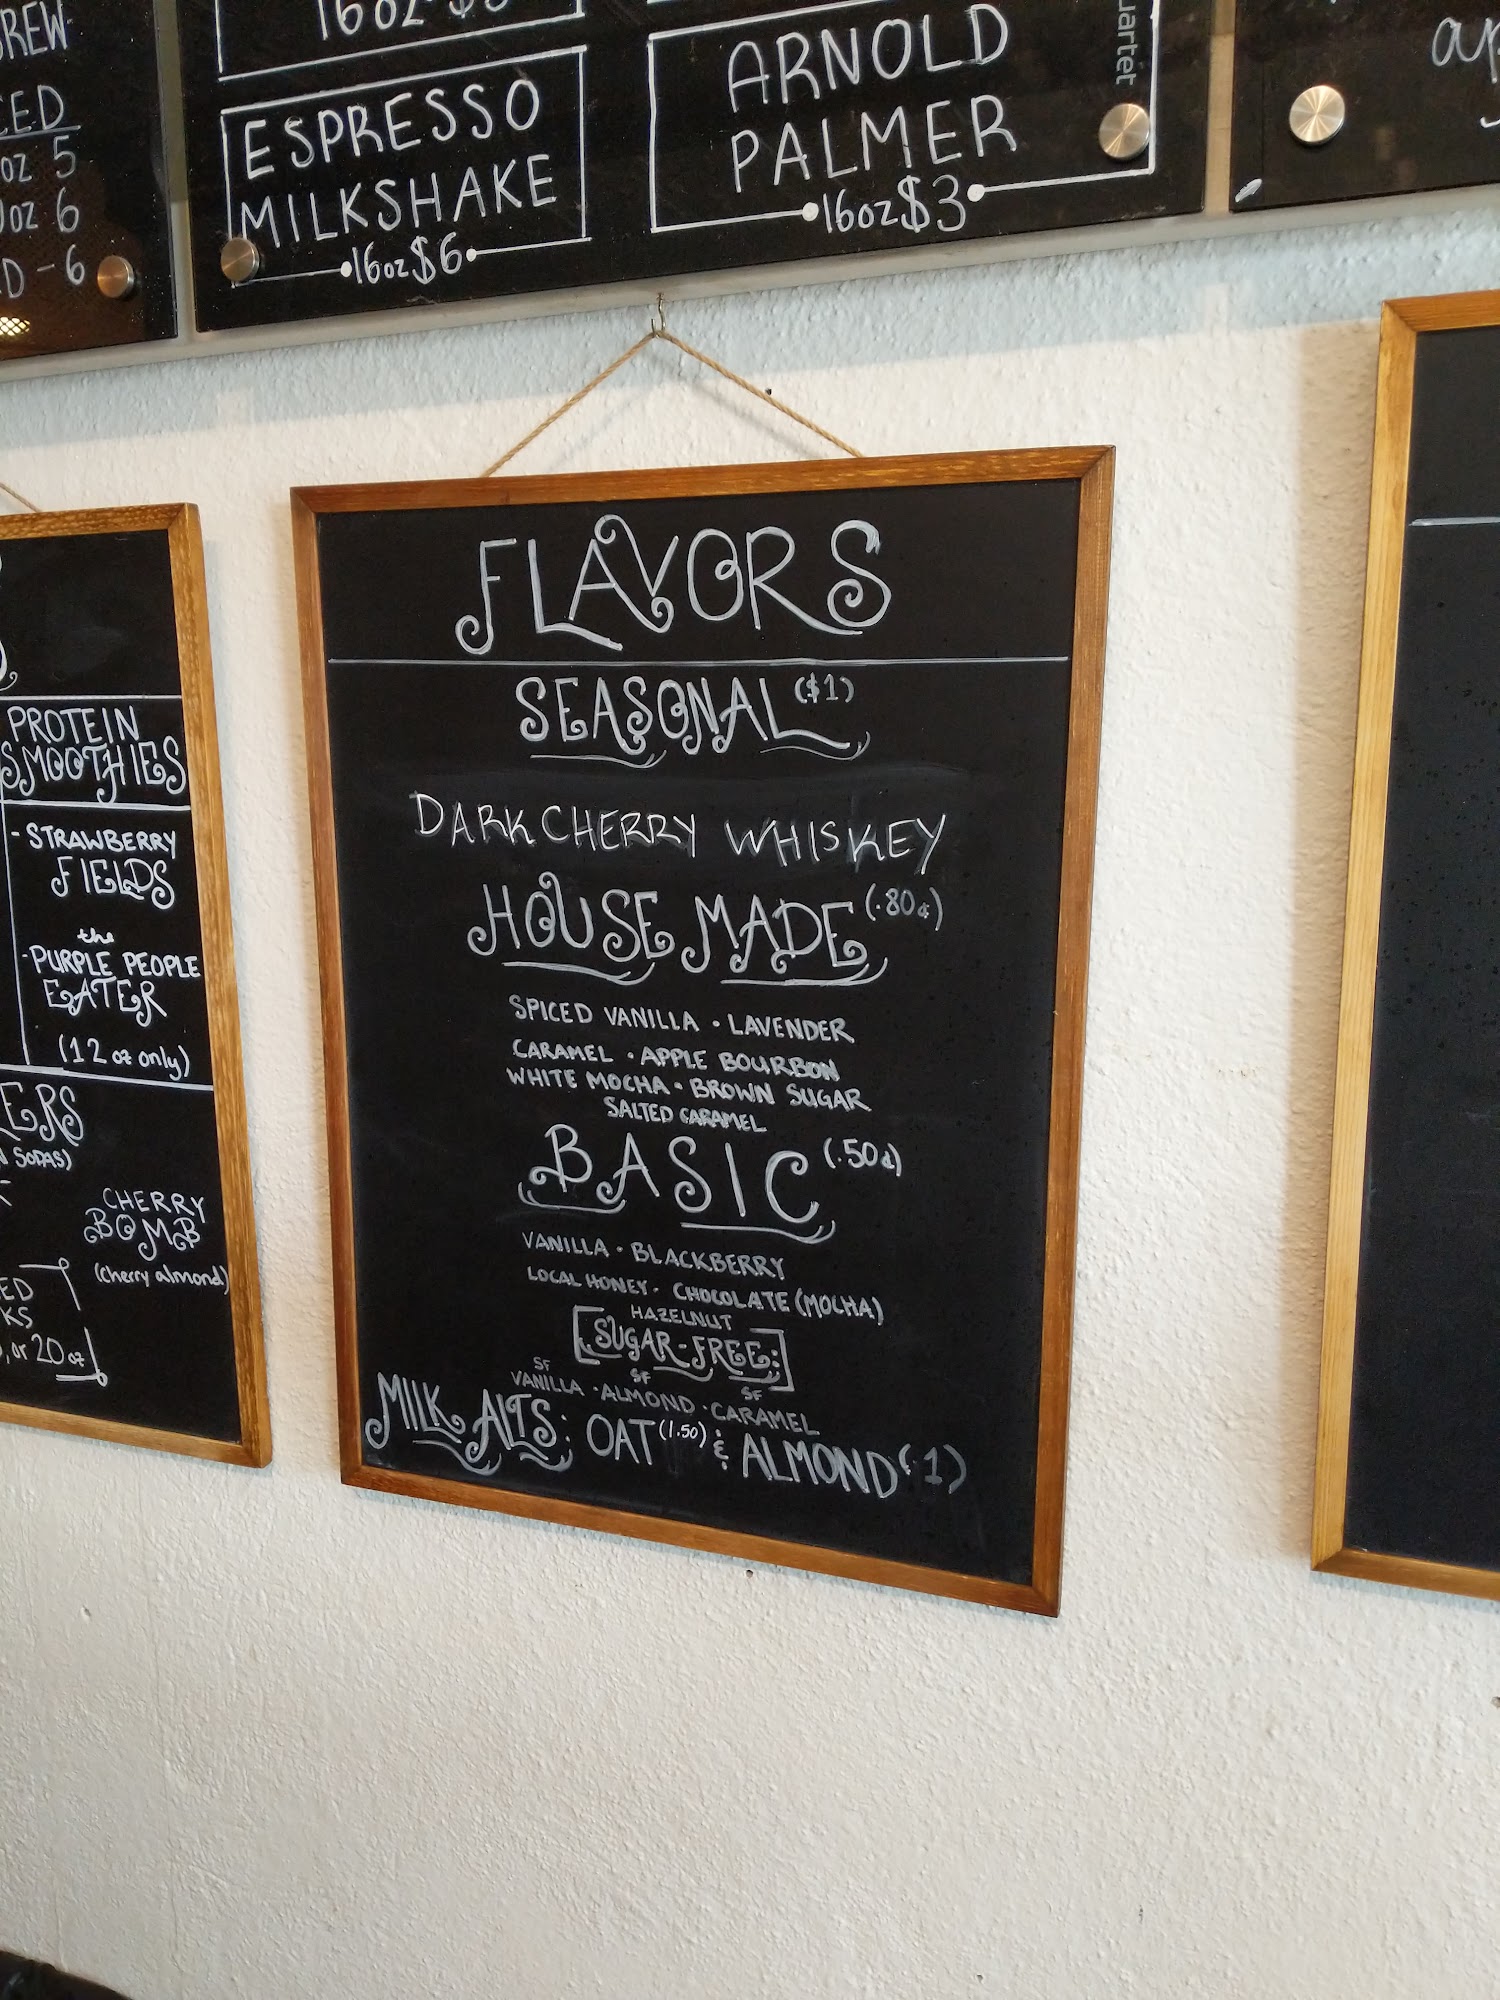 16oz
ESPRESSO
MILKSHAKE
16oz $6
ARNOLD
PALMER
16oz $3
oz 5
oz 6
- 6
PROTEIN
SMOOTHIES
- STRAWBERRY
FIELDS
the
- PURPLE PEOPLE
EATER
(12 oz only)
CHERRY
BOMB
(cherry almond)
or 20 oz
FLAVORS
SEASONAL ($1)
DARK CHERRY WHISKEY
HOUSE MADE (.80¢)
SPICED VANILLA • LAVENDER
CARAMEL • APPLE BOURBON
WHITE MOCHA • BROWN SUGAR
SALTED CARAMEL
BASIC (.50¢)
VANILLA • BLACKBERRY
LOCAL HONEY • CHOCOLATE (MOCHA)
HAZELNUT
[SUGAR-FREE:]
SF SF SF
VANILLA • ALMOND • CARAMEL
MILK ALTS: OAT (1.50) & ALMOND ( 1)